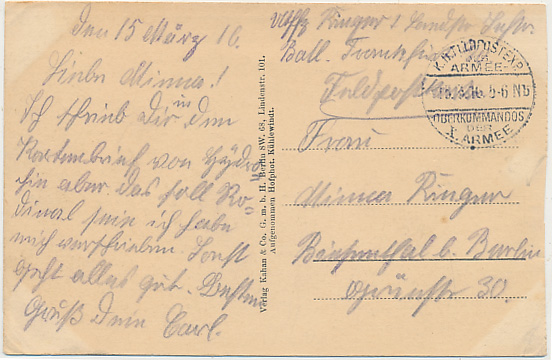 den 15 März 16.
Liebe Minna!
Ich schrieb Dir im den
Kartenbrief von
hin aber das soll Ro-
dinal sein ich habe
mich verschrieben. Sonst
geht alles gut. Besten
Gruß Dein Carl.
Verlag Kahan & Co. G. m. b. H. Berlin SW. 68, Lindenstr. 101.
Aufgenommen Hofphot. Kühlewindt.
Uffz Ringer 1 Landst. Inftr.
Batl.
Feldpost
K.D. FELDPOSTEXP.
DER
ARMEE-
5-6 N
OBERKOMMANDOS
DER
X. ARMEE
Frau
Minna Ringer
Biesenthal b. Berlin
30.